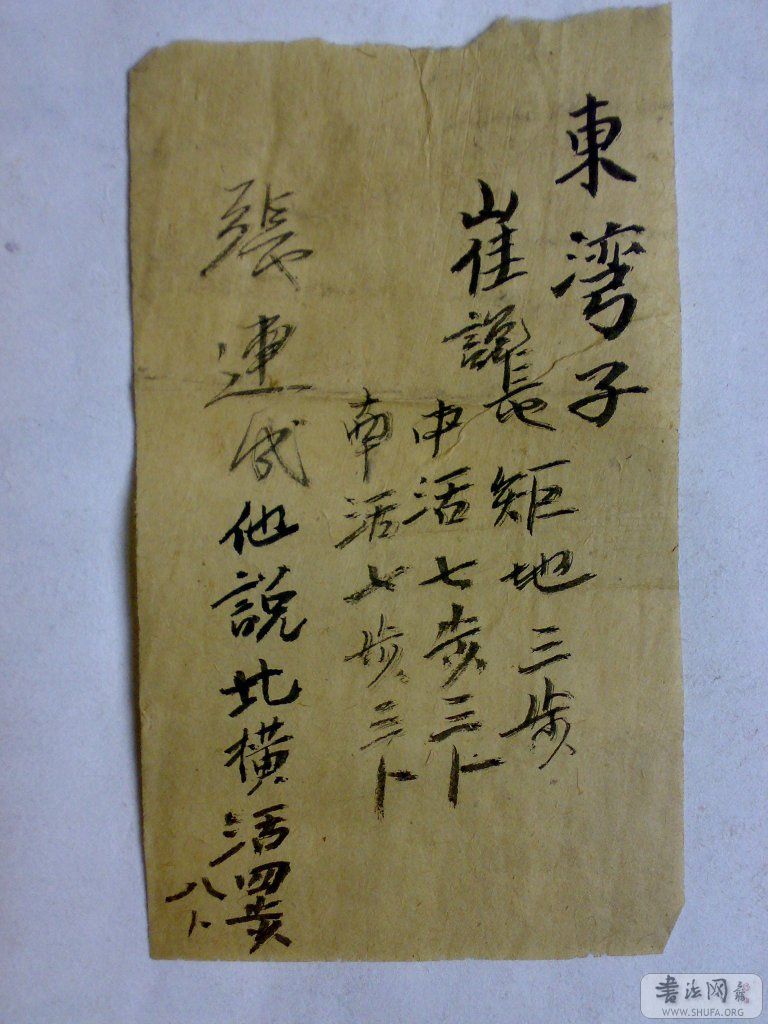 東湾子
崔說長矩地三步
中活七步三卜
南活七步三卜
張連成他說北橫活四步
八卜
書法网
WWW.SHUFA.ORG